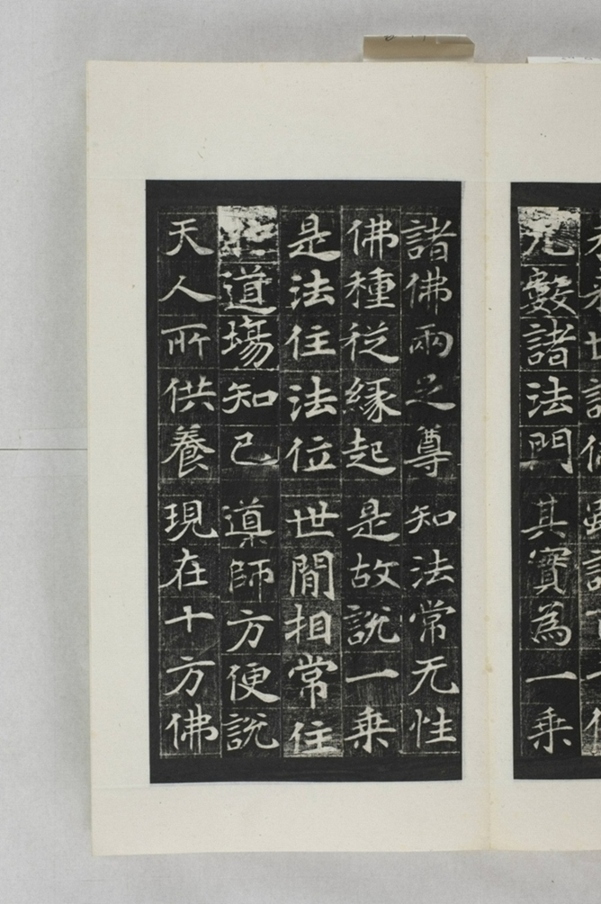 无數諸法門其實為一乗
諸佛兩之尊知法常无性
佛種従緣起是故說一乗
是法住法位世間相常住
道場知已導師方便說
天人所供養現在十方佛